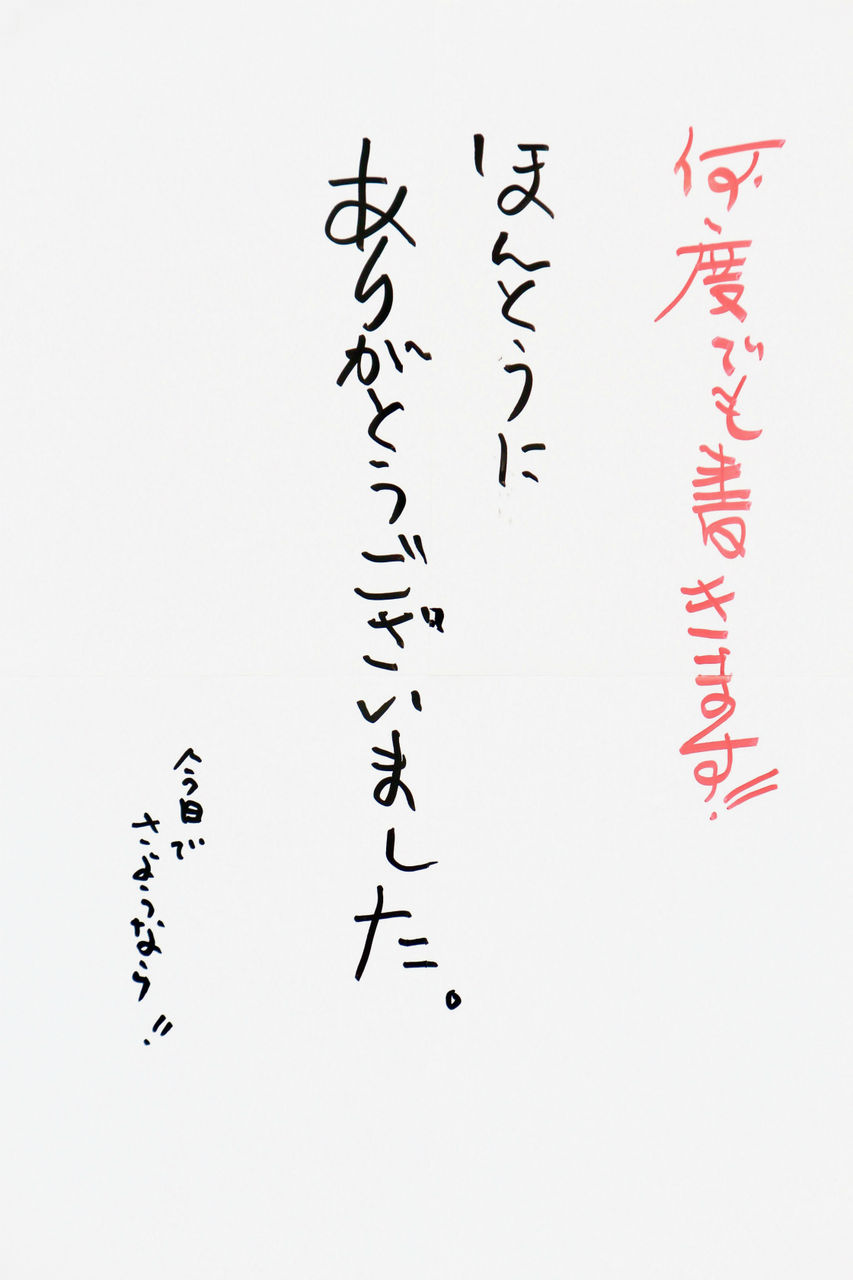 何度でも書きます!!
ほんとうに
ありがとうございました。
今日で
さようなら!!